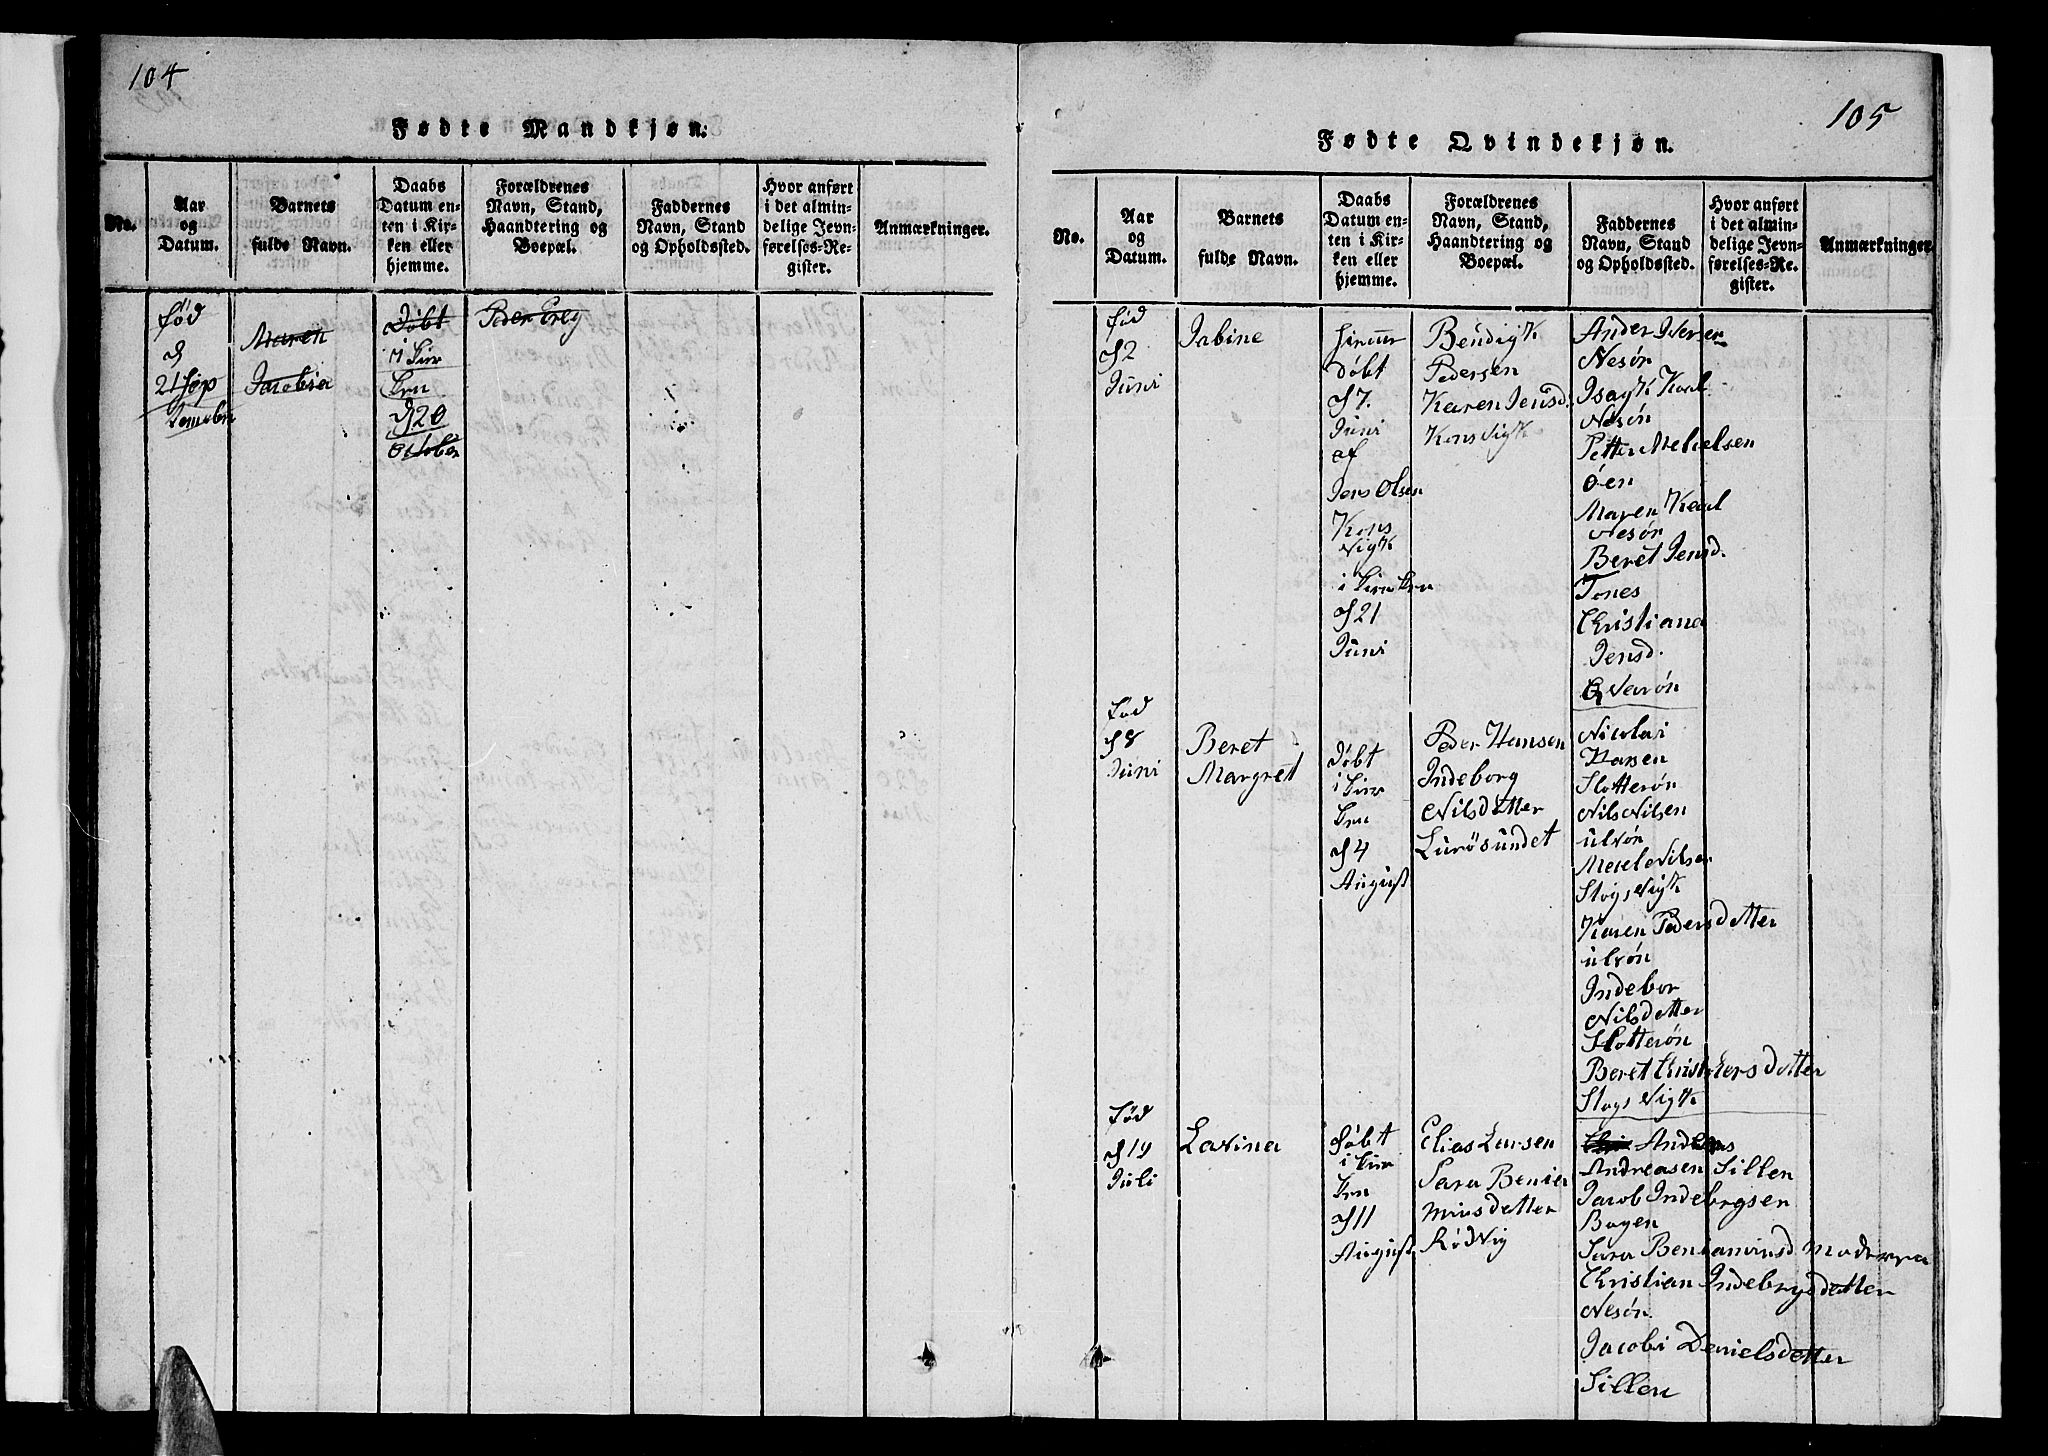 104
Fødte Mandkjøn.
No.
Aar
og
Datum.
Barnets
fulde Navn.
Daabs
Datum en-
ten i Kir-
ken eller
hjemme.
Forældrenes
Navn, Stand,
Haandtering og
Boepæl.
Faddernes
Navn, Stand
og Opholdssted.
Hvor anført
i det almin-
delige Jevn-
førelses-Re-
gister.
Anmærkninger.
Fød
d
21 Sep
Maren
Jacobia
Døbt
i Kir
ken
d 20
October
Peder
105
Fødte Qvindekjøn.
No.
Aar
og
Datum.
Barnets
fulde Navn.
Daabs
Datum en-
ten i Kir-
ken eller
hjemme.
Forældrenes
Navn, Stand,
Haandtering og
Boepæl.
Faddernes
Navn, Stand
og Opholdssted.
Hvor anført
i det almin-
delige Jevn-
førelses-Re-
gister.
Anmærkninger
fød
d 2
Juni
Jabine
døbt
d 7.
Juni
af
Jens Olsen
Kons
vigk
i Kirken
d 21
Juni
Bendigk
Pedersen
Karen Jensd.
Konsvigk
Ander Iversen
Nesøn
Isagk Karl
Nesøn
Petter
Øen
Maren Karl
Nesøn
Beret Jensd.
Tones
Christiana
Jensd.
Qvarøn
Fød
d 8
Juni
Beret
Margret
Døbt
i Kir
ken
d 4
August
Peder Hansen
Indeborg
Nilsdetter
Lurøsundet
Nicolai
Hansen
Slotterøn
Nils Nilsen
ulvøn
Nilsen
Stogsvigk
Karen Pedersdetter
ulvøn
Indebor
Nilsdetter
Slotterøn
Beret Kristofersdetter
Stogsvigk
Fød
d 19
Juli
Lavina
Døbt
i Kir
ken
d 11
August
Elias Larsen
Sara Benia
minsdetter
Rødvig
Anders
Andreasen Sillen
Jacob Indebrgsen
Bogen
Sara Beniaminsd
Christian Indebrgsdetter
Nesøn.
Jacobi Danielsdetter
Sillen